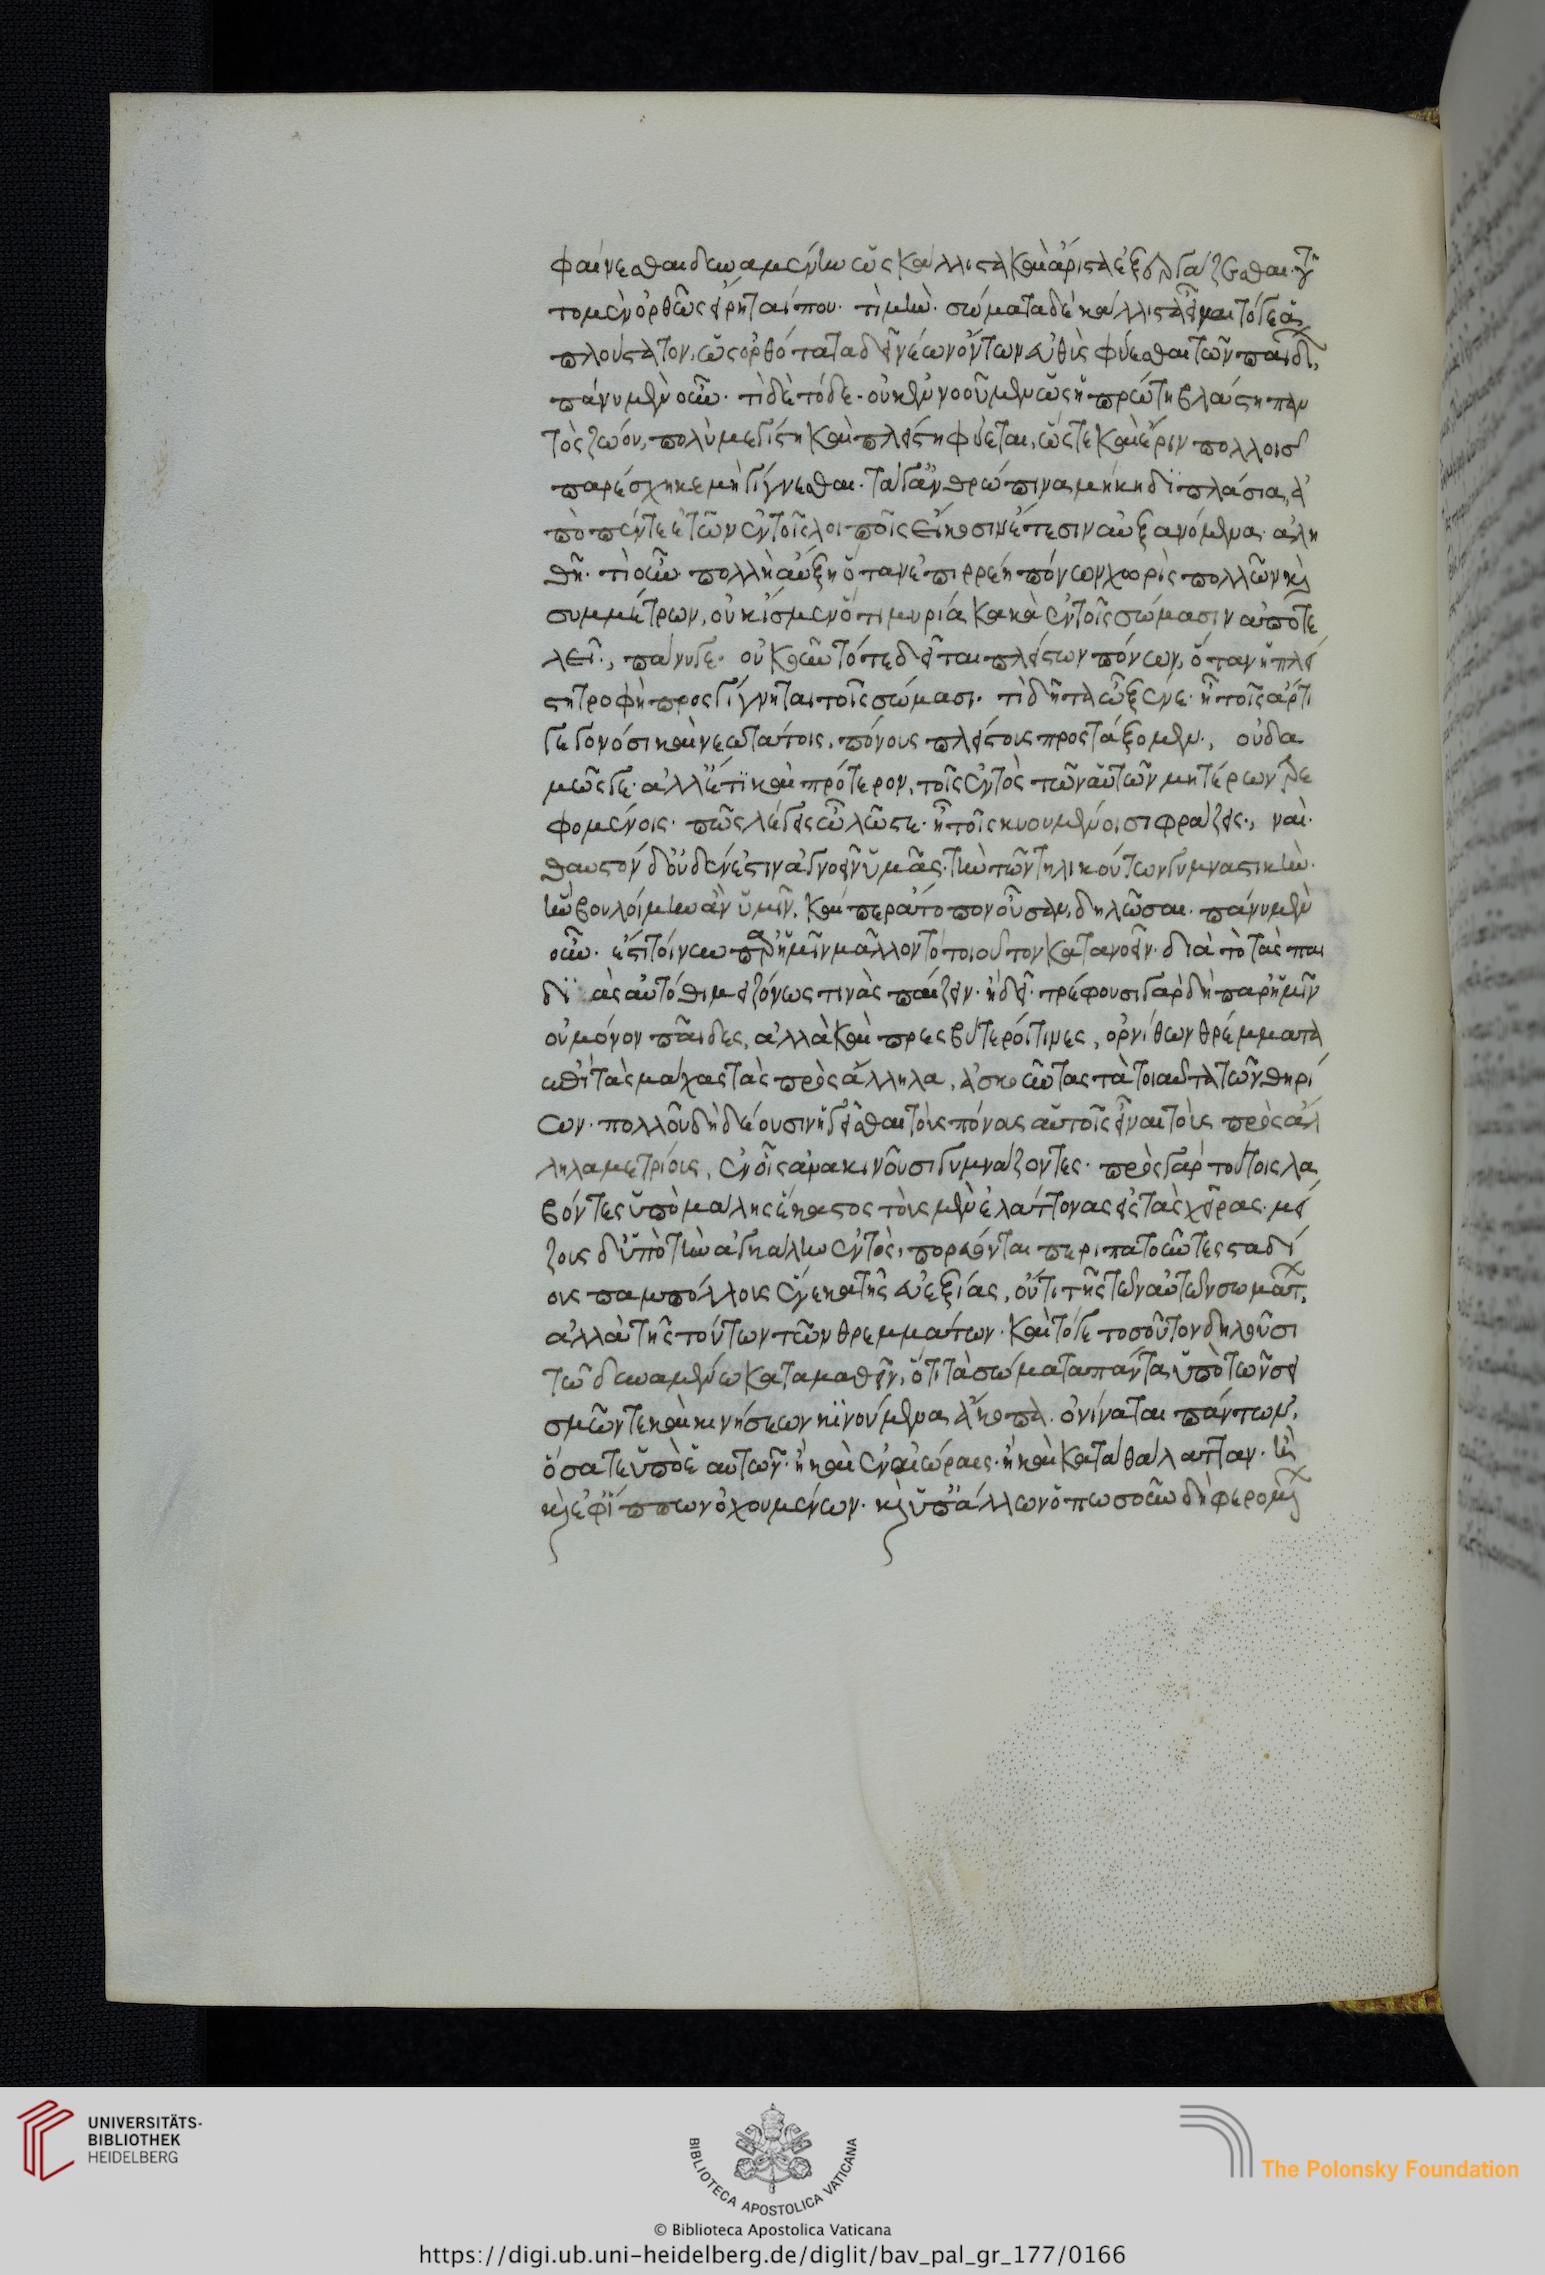 φαίνεσθαι δυναμένην ὡς κάλλιστα καὶ ἄριστα ἐξεργάζεσθαι· τοῦ
το μὲν ὀρθῶς εἴρηταί που· τί μήν· σώματα δὲ κάλλιστα εἶναι τό γε ἁ
πλούστατον, ὡς ὀρθότατα δεῖ νέων ὄντων εὐθὺς φύεσθαι τῶν παίδων,
πάνυ μὲν οὖν· τί δὲ τόδε· οὐκ ἐννοοῦμεν ὡς ἡ πρώτη βλάστη παν
τὸς ζώου, πολὺ μεγίστη καὶ πλείστη φύεται, ὥστε καὶ ἔριν πολλοῖς
παρέσχηκε μὴ γίγνεσθαι· τά γ' ἀνθρώπινα μήκη διπλάσια, ἀ
πὸ πέντε ἐτῶν ἐν τοῖς λοιποῖς εἴκοσιν ἔτεσιν αὐξανόμενα· ἀλη
θῆ· τί οὖν· πολλὴ αὔξη ὅταν ἐπιρρέῃ πόνων χωρὶς πολλῶν καὶ
συμμέτρων, οὐκ ἴσμεν ὅτι μυρία κακὰ ἐν τοῖς σώμασιν ἀποτε
λεῖ., πάνυ γε· οὐκοῦν τότε δεῖται πλείστων πόνων, ὅταν ἡ πλεί
στη τροφὴ προσγίγνηται τοῖς σώμασι· τί δῆτα ὦ ξένε· ἦ τοῖς ἄρτι
γεγονόσι καὶ νεωτάτοις, πόνους πλείστους προστάξομεν., οὐδα
μῶς γε· ἀλλ' ἔτι καὶ πρότερον, τοῖς ἐντὸς τῶν αὑτῶν μητέρων τρε
φομένοις· πῶς λέγεις ὦ λῶστε· ἦ τοῖς κυουμένοισι φράζεις., ναί·
θαυστὸν δ' οὐδέν ἐστιν ἀγνοεῖν ὑμᾶς· τὴν τῶν τηλικούτων γυμναστικήν·
ἣν βουλοίμην ἂν ὑμῖν, καίπερ ἄτοπον οὖσαν, δηλῶσαι· πάνυ μὲν
οὖν· ἔστι τοίνυν παρ' ἡμῖν μᾶλλον τὸ τοιοῦτον κατανοεῖν· διὰ τὸ τὰς παι
διὰς αὐτόθι μειζόνως τινὰς παίζειν· ἢ δεῖ· τρέφουσι γὰρ δὴ παρ' ἡμῖν
οὐ μόνον παῖδες, ἀλλὰ καὶ πρεσβύτεροί τινες, ὀρνίθων θρέμματα
ἐπὶ τὰς μάχας τὰς πρὸς ἄλληλα, ἀσκοῦντας τὰ τοιαῦτα τῶν θηρί
ων· πολλοῦ δὴ δέουσιν ἡγεῖσθαι τοὺς πόνας αὐτοῖς εἶναι τοὺς πρὸς ἄλ
ληλα μετρίους, ἐν οἷς ἀνακινοῦσι γυμνάζοντες· πρὸς γὰρ τούτοις λα
βόντες ὑπὸ μάλης ἕκαστος τοὺς μὲν ἐλάττονας εἰς τὰς χεῖρας· μεί
ζους δ' ὑπὸ τὴν ἀγκάλην ἐντὸς, πορεύονται περιπατοῦντες σταδί
ους παμπόλλους ἕνεκα τῆς εὐεξίας, οὔτι τῆς τῶν αὑτῶν σωμάτων,
ἀλλὰ τῆς τούτων τῶν θρεμμάτων· καὶ τό γε τοσοῦτον δηλοῦσι
τῷ δυναμένῳ καταμαθεῖν, ὅτι τὰ σώματα πάντα ὑπὸ τῶν σει
σμῶν τε καὶ κινήσεων κινούμενα ἄκοπα ὀνίναται πάντων,
ὅσα τε ὑπὸ ἑαυτῶν· ἢ καὶ ἐν αἰώραις· ἢ καὶ κατὰ θάλατταν· ἢ
καὶ ἐφ' ἵππων ὀχουμένων· καὶ ὑπ' ἄλλων ὁπωσοῦν δὴ φερομέν
UNIVERSITÄTS-
BIBLIOTHEK
HEIDELBERG
BIBLIOTECA APOSTOLICA VATICANA
The Polonsky Foundation
© Biblioteca Apostolica Vaticana
https://digi.ub.uni-heidelberg.de/diglit/bav_pal_gr_177/0166